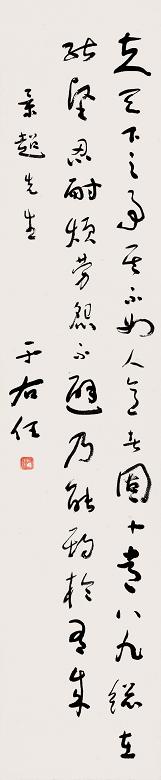 天下之事其不如人意者固十常八九總在
能堅忍耐煩勞怨不避乃能期於有成
景超先生　于右任